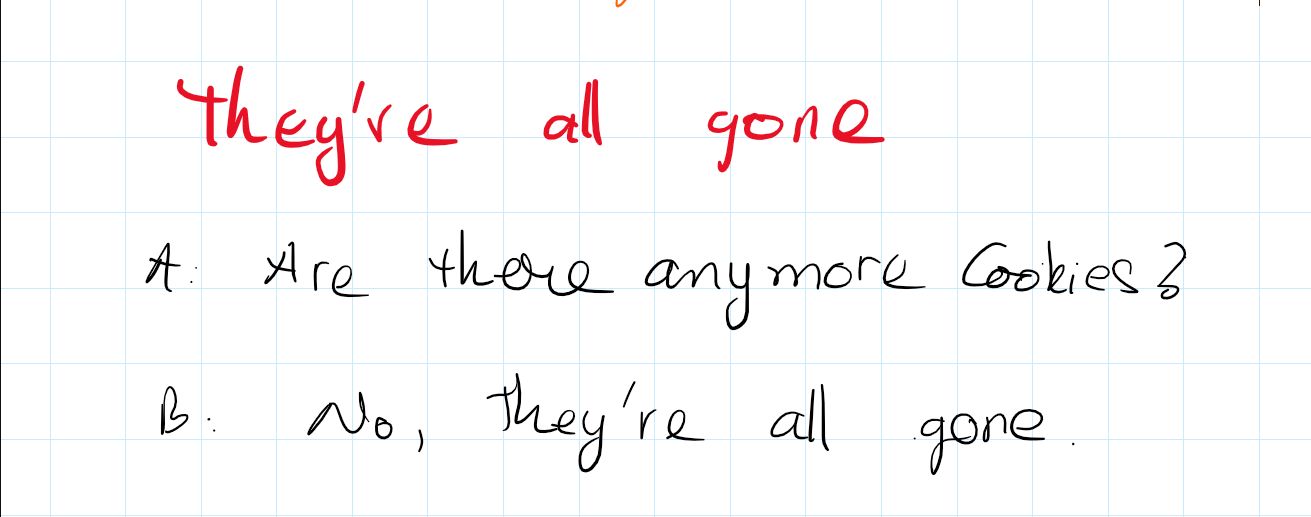 they're all gone
A: Are there anymore Cookies?
B: No, they're all gone.